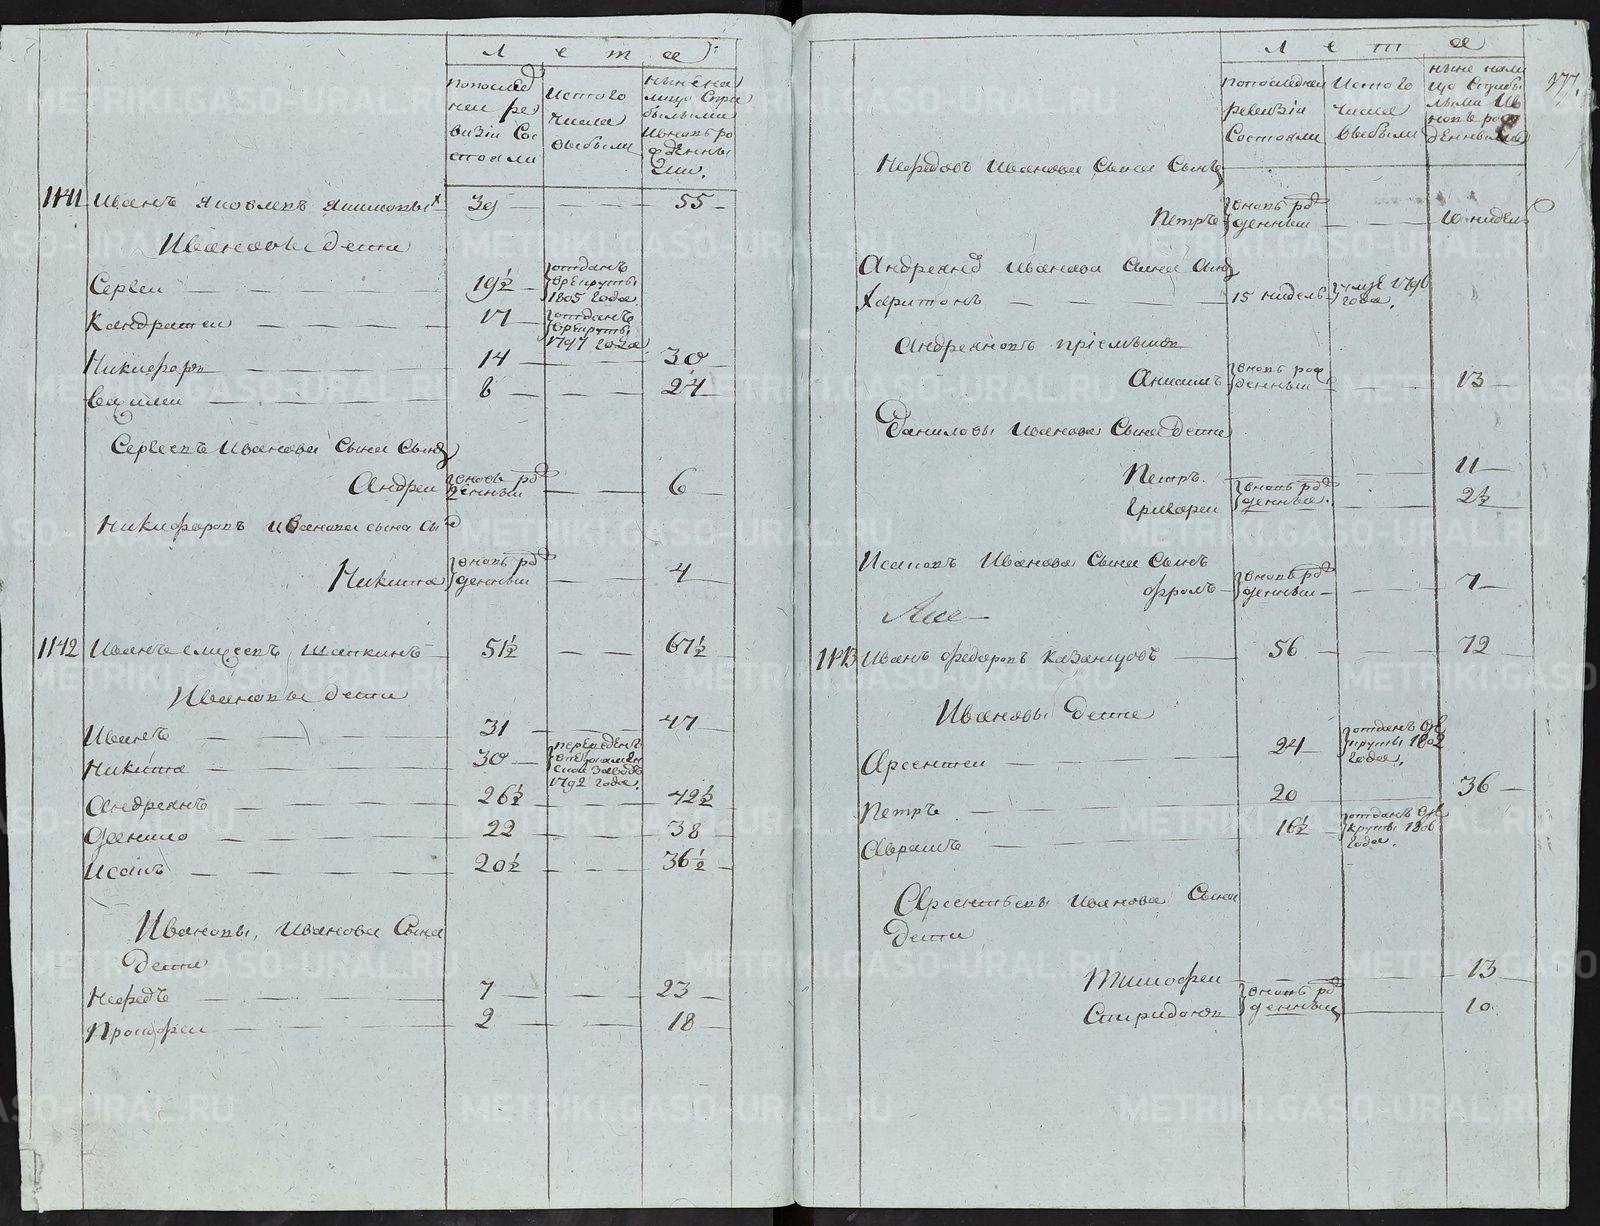 Лета
Попослед
ней ре
визіи Сос
тояли
Истого
числа
выбыли
ныне на
лицо
1141 Иванъ Яковлевъ Якимовы 39 — — 55
Ивановы дети
Сергеи — — — 19½ отданъ
врекруты
1805 года
Кандратеи — — — 17 отданъ
врекруты
1797 года
Никифоръ — — — 14 — — 30
Василеи — — — 8 — — 24
Сергеевъ Иванова Сына Сынъ
Андреи вновь рож
денныи — — 6
Никифоровъ иванова сына сы
Никита вновь рож
денныи — — 4
1142 Иванъ елисеевъ Шапкинъ 51½ — — 67½
Ивановы дети
Иванъ — — — 31 — — 47
Никита — — — 30 переведенъ
заводъ
1792 года.
Андреянъ — — — 26½ — — 42½
Данило — — — 22 — — 38
Исакъ — — — 20½ — — 36½
Ивановы, Иванова Сына
Дети
Нефедъ — — — 7 — — 23
Пролфеи — — — 2 — — 18
Лета
177.
Попоследнеи
ревизіи
Состояли
Истого
числа
выбыли
ныне нали
цо
Нефедовъ Иванова Сына Сынъ
Петръ вновь рож
денныи — — 10 нидель
Андреянъ Иванова Сына Сынъ
Харитонъ — — — 15 нидель 1796
года.
Андреяновъ пріемышъ
вновь рож
денныи — — 13
Даниловы Иванова Сына Дети
Петръ — — 11
Григореи вновь рож
денные. — — 2½
Исаковъ Иванова Сына Сынъ
фролъ вновь рож
денныи — — 7
1143 Иванъ федоровъ Казанцовъ — 56 — — 72
Ивановы Дети
Арсентеи — — — 24 отданъ вре
круты 1802
года.
Петръ — — — 20 — — 36
Аврамъ — — — 16½ отданъ вре
круты 1806
года.
Арсентьевы Иванова Сына
Дети
Тимофеи — — 13
Спиридонъ вновь рож
денныи — — 10